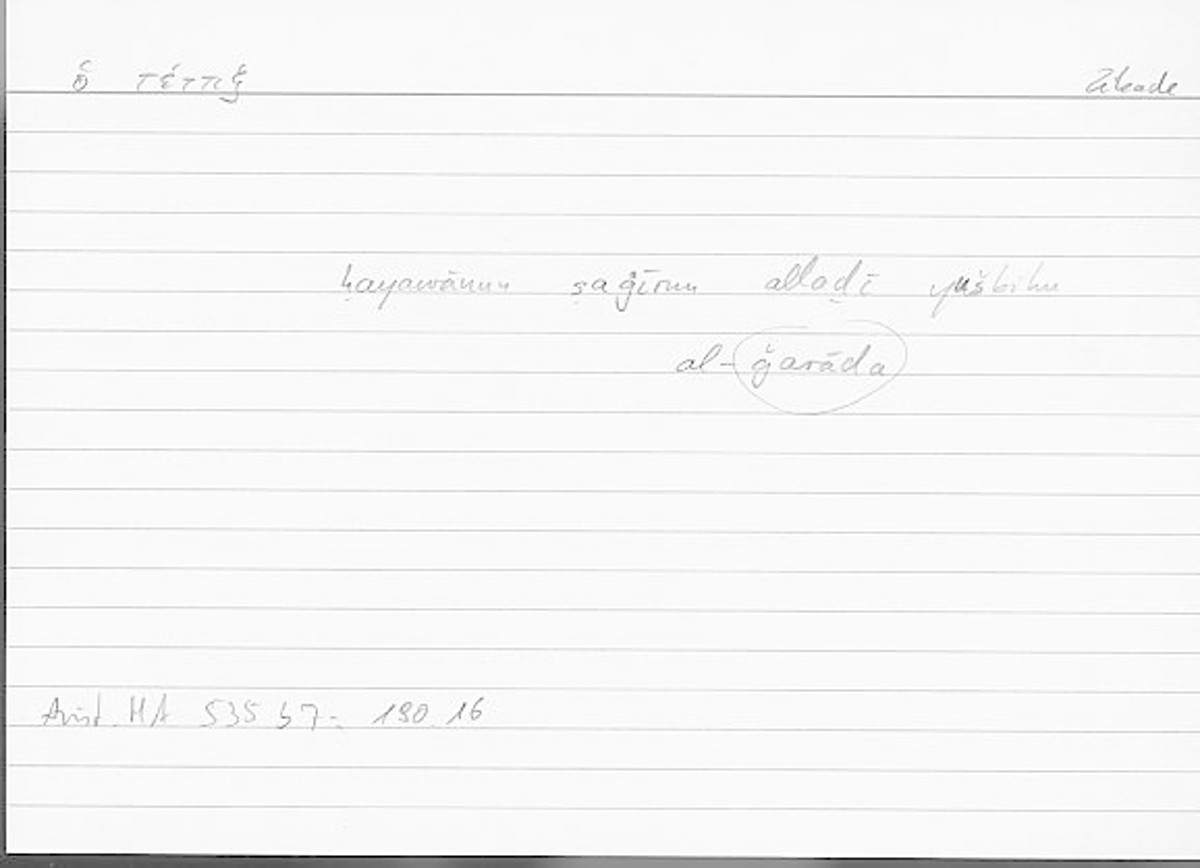 ὁ τέττιξ Zikade
ḥayawānun ṣaġīrun allaḏī yušbihu
al-ǧarāda
Arist. HA 535 b7 = 190.16